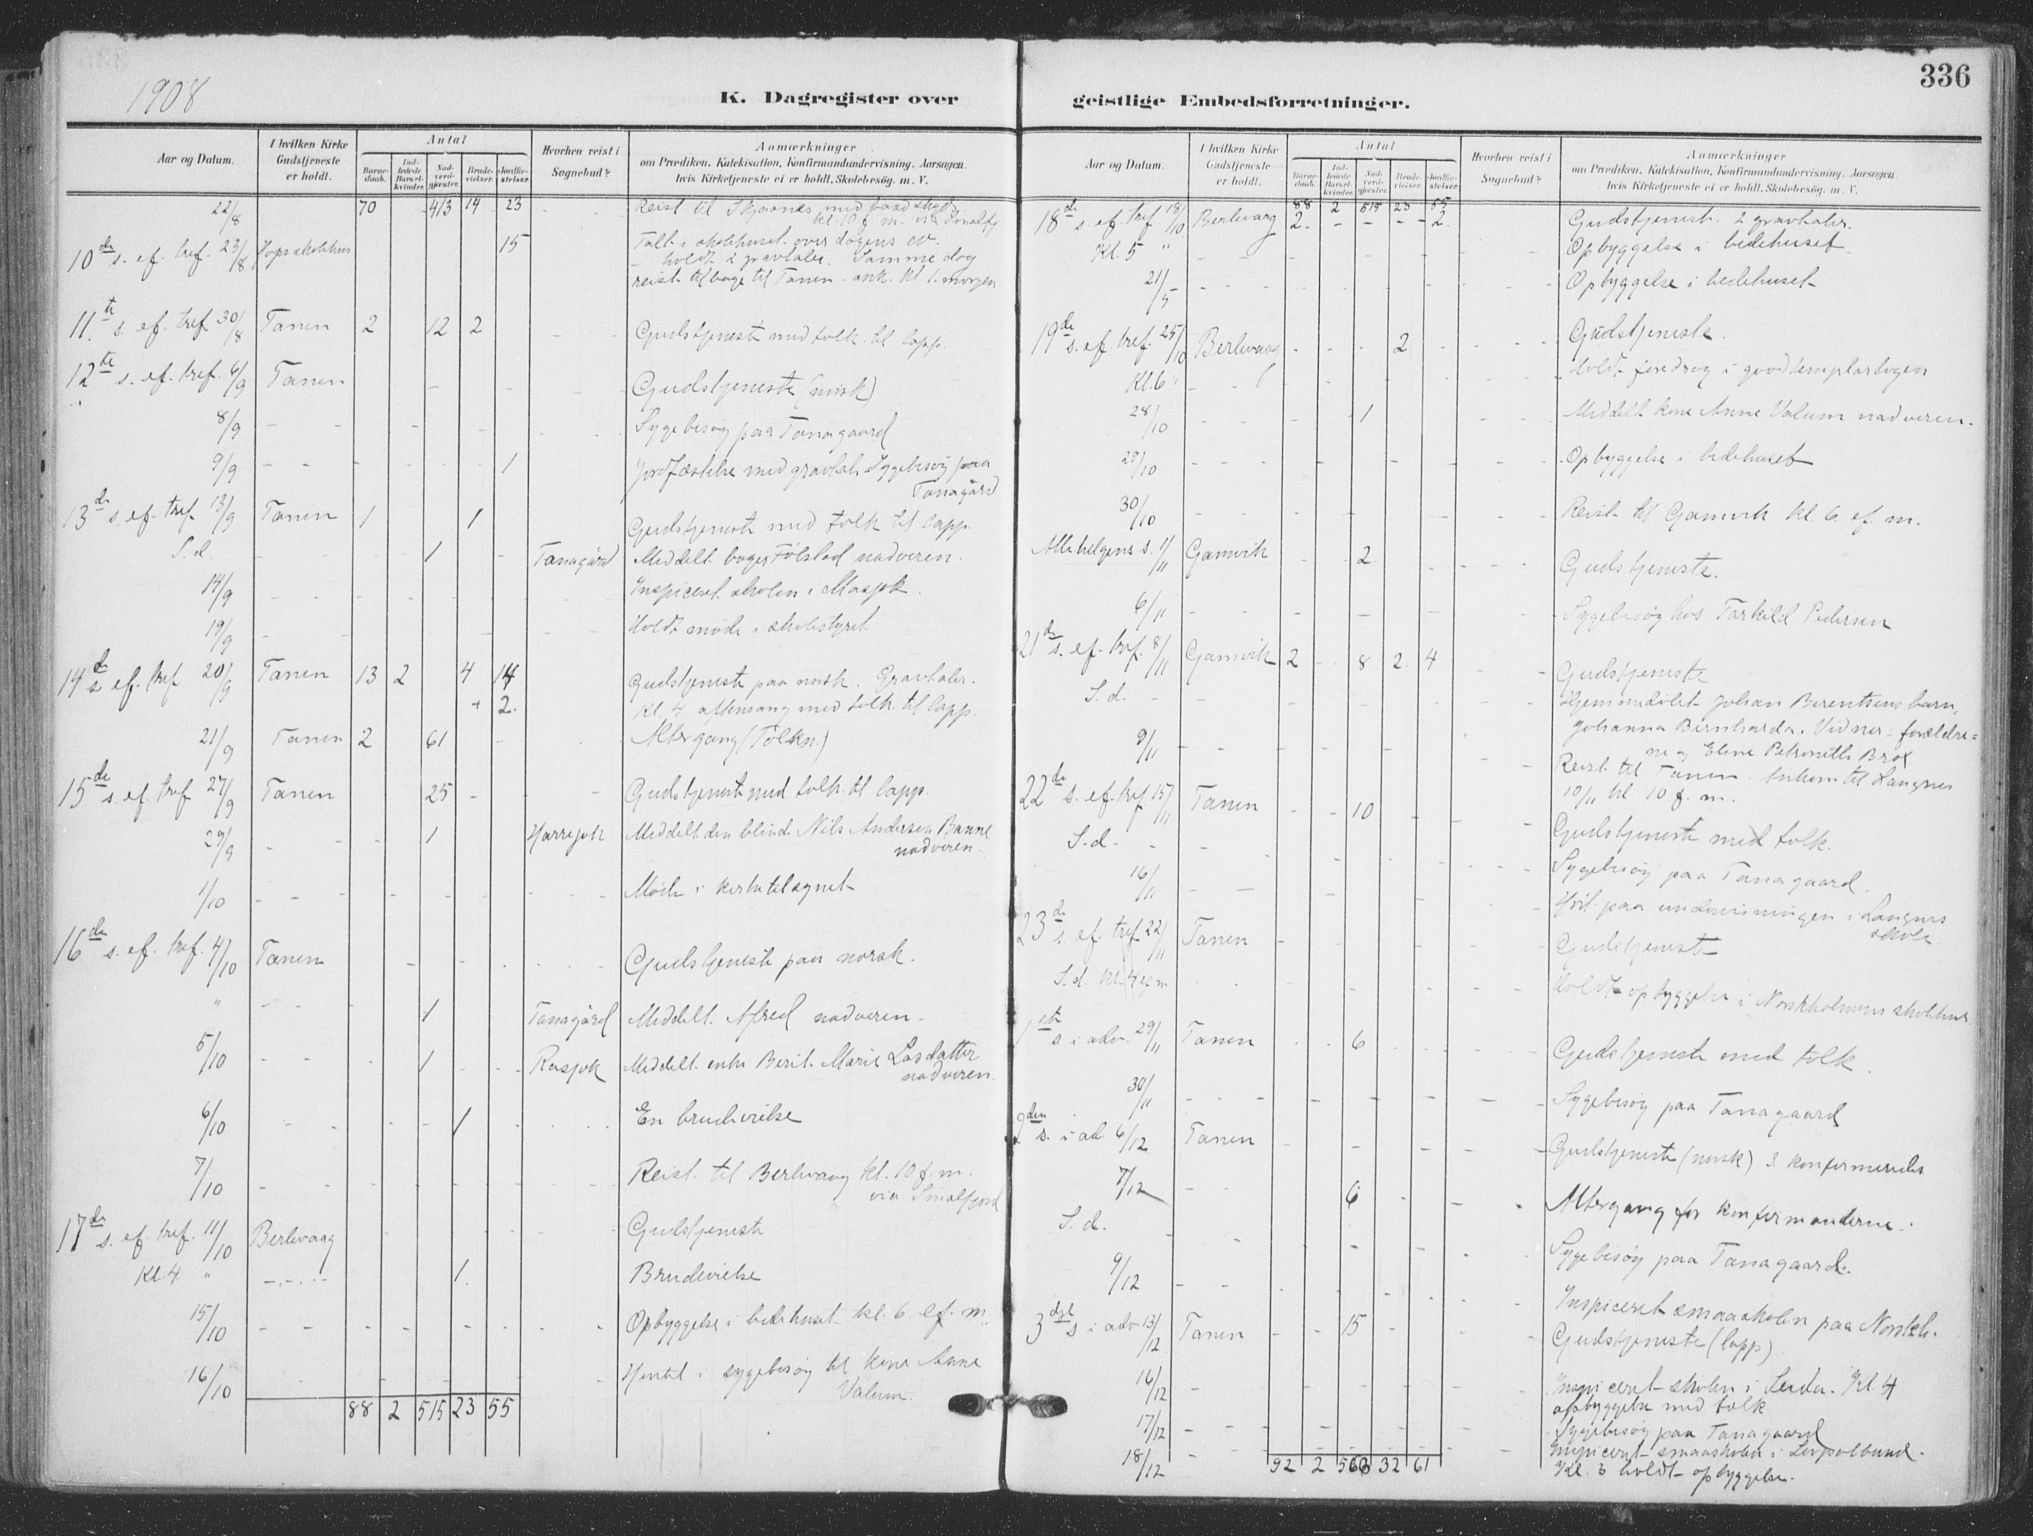 1908
336
K. Dagregister over geistlige Embedsforretninger.
Aar og Datum. I hvilken Kirke Gudstjeneste er holdt. Antal Barnedaab. Indledede Barselkvinder. Nadverdgjester. Brudevielser. Jordfæstelser. Hvorhen reist i Sognebud? Anmærkninger om Prædiken, Katekisation, Konfirmandundervisning, Aarsagen, hvis Kirketjeneste ei er holdt, Skolebesøg. m. V.
22/8 70 413 14 23 Reist til Skjaanes med baadskyds
kl. 10 f. m. via Smalfj
10de s. ef. tref. 23/8 Hops skolehus 15 Talt i skolehuset over dagens ev.
holdt 2 gravtaler. Samme dag
reist tilbage til Tanen - ank. kl. 1 morgen
11te s. ef. tref 30/8 Tanen 2 12 2 Gudstjeneste med tolk til lapp.
12te s. ef. tref. 6/9 Tanen - - Gudstjeneste (norsk)
8/9 - - - Sygebesøg paa Tanagaard
9/9 - - - 1 Jordfæstelse med gravtale Sygebesøg paa
Tanagård
13de s. ef. tref 13/9 Tanen 1 1 Gudstjeneste med tolk til lapp.
S. d. - - 1 Tanagård Meddelt bager Følstad nadveren.
14/9 - - Inspiceret skolen i Masjok.
19/9 - - Holdt møde i skolestyret
14de s. ef. tref 20/9 Tanen 13 2 4 14 Gudstjeneste paa norsk. Gravtaler.
+ 2. Kl. 4 aftensang med tolk til lapp.
21/9 Tanen 2 61 - Altergang (Tolkn.)
15de s. ef. tref 27/9 Tanen 25 - Gudstjeneste med tolk til lapp.
29/9 - - 1 Harrejok Meddelt den blinde Nils Andersen Banne
nadveren.
1/10 - - - Møde i kirketilsynet
16de s. ef. tref. 4/10 Tanen - - Gudstjeneste paa norsk.
" - - 1 Tanagård Meddelt Alfred nadveren.
5/10 - - 1 Meddelt enke Berit Marie Lasdatter
nadveren.
6/10 - - 1 En brudevielse
7/10 - - - Reist til Berlevaag kl. 10 f. m.
via Smalfjord
17de s. ef. tref. 11/10 Berlevaag - - Gudstjeneste
Kl. 4 " - - 1. Brudevielse
15/10 - - - Opbyggelse i bedehuset kl. 6 ef. m.
16/10 - - - Hentet i sygebesøg til kone Anne
Valum.
88 2 515 23 55
Aar og Datum. I hvilken Kirke Gudstjeneste er holdt. Antal Barnedaab. Indledede Barselkvinder. Nadverdgjester. Brudevielser. Jordfæstelser. Hvorhen reist i Sognebud? Anmærkninger om Prædiken, Katekisation, Konfirmandundervisning, Aarsagen, hvis Kirketjeneste ei er holdt, Skolebesøg. m. V.
88 2 515 23 55
18de s. ef. tref 18/10 Berlevaag 2. - - - 2. Gudstjenest. 2 gravtaler.
Kl. 5 " Opbyggelse i bedehuset
21/5 - - - Opbyggelse i bedehuset
19de s. ef. tref. 25/10 Berlevaag - - - 2 Gudstjeneste.
Kl. 6 - - Holdt foredrag i goodtemplarlogen
28/10 1 Meddelt kone Anne Valum nadveren.
29/10 - - - Opbyggelse i bedehuset
30/10 - - - Reist til Gamvik kl. 6 ef. m.
Allehelgens s. 1/11 Gamvik 2 Gudstjeneste.
6/11 - - - Sygebesøg hos Torkild Pedersen
21de s. ef. tref. 8/11 Gamvik 2 8 2 4 Gudstjeneste
S. d. - - - Hjemmedøbt Johan Berentsens barn,
Johanna Bernharda. Vidner: forældre=
ne og Eline Petronelle Brox
9/11 - - - Reist til Tanen. Ankom til Langnes
10/11 kl 10 f. m.
22de s. ef. tref 15/11 Tanen - - 10 Gudstjeneste med tolk.
S. d. - - - Sygebesøg paa Tanagaard.
16/11 - - Hørt paa undervisningen i Langnes
skole.
23de s. ef. tref 22/11 Tanen - Gudstjeneste
S. d. kl. 4 ef. m - - Holdt opbyggelse i Norskholmens skolehus
1ste s i adv. 29/11 Tanen 6 Gudstjeneste med tolk.
30/11 - - - Sygebesøg paa Tanagaard
2den s. i ad 6/12 Tanen - - Gudstjeneste (norsk) 3 konfirmerede
7/12 - - 6 - Altergang for konfirmanderne.
S. d. - - Sygebesøg paa Tanagaard.
9/12 - - Inspiceret smaaskolen paa Norskh.
3dje s i adv 13/12 Tanen - - 15 Gudstjeneste (lapp)
16/12 - Inspiceret skolen i Seida. Kl. 4
opbyggelse med tolk
17/12 - - Sygebesøg paa Tanagaard
18/12 - - Inspiceret smaaskolen i
Kl. 3 holdt opbyggelse.
92 2 566 32 61